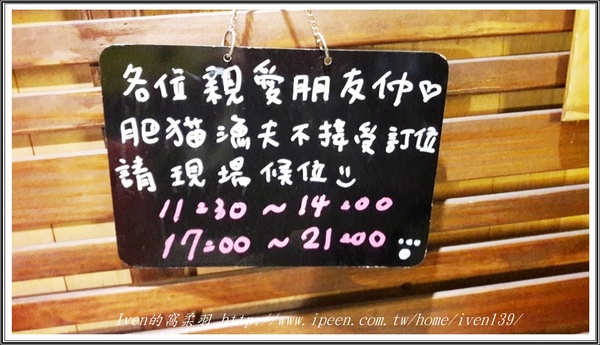 各位親愛朋友仲♡
肥猫漁夫不接受訂位
請現場候位
11:30 ~ 14:00
17:00 ~ 21:00
Iven的窩柔羽 http://www.ipeen.com.tw/home/iven139/